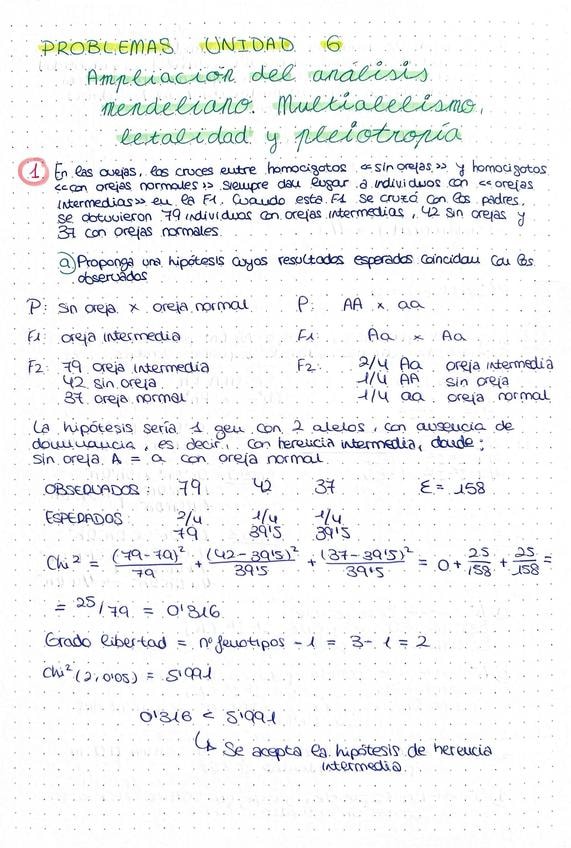 PROBLEMAS UNIDAD 6
Ampliación del análisis
mendeliano. Multialelismo,
letalidad y pleiotropía
1 En las ovejas, los cruces entre homocigotos «sin orejas» y homocigotos
«con orejas normales» siempre dan lugar a individuos con «orejas
intermedias» en la F1. Cuando esta F1 se cruzó con los padres,
se obtuvieron 79 individuos con orejas intermedias, 42 sin orejas y
37 con orejas normales.
a) Proponga una hipótesis cuyos resultados esperados coincidan con los
observados
P: sin oreja x oreja normal P: AA x aa
F1: oreja intermedia F1: Aa x Aa
F2: 79 oreja intermedia F2: 2/4 Aa oreja intermedia
42 sin oreja 1/4 AA sin oreja
37 oreja normal 1/4 aa oreja normal
La hipótesis sería 1 gen con 2 alelos, con ausencia de
dominancia, es decir, con herencia intermedia, donde:
sin oreja A = a con oreja normal
OBSERVADOS: 79 42 37 Σ = 158
ESPERADOS: 2/4 1/4 1/4
79 39'5 39'5
Chi² = (79-79)²/79 + (42-39'5)²/39'5 + (37-39'5)²/39'5 = 0 + 25/158 + 25/158 =
= 25/79 = 0'316
Grado libertad = nº fenotipos - 1 = 3 - 1 = 2
Chi² (2, 0'05) = 5'991
0'316 < 5'991
↳ Se acepta la hipótesis de herencia
intermedia.